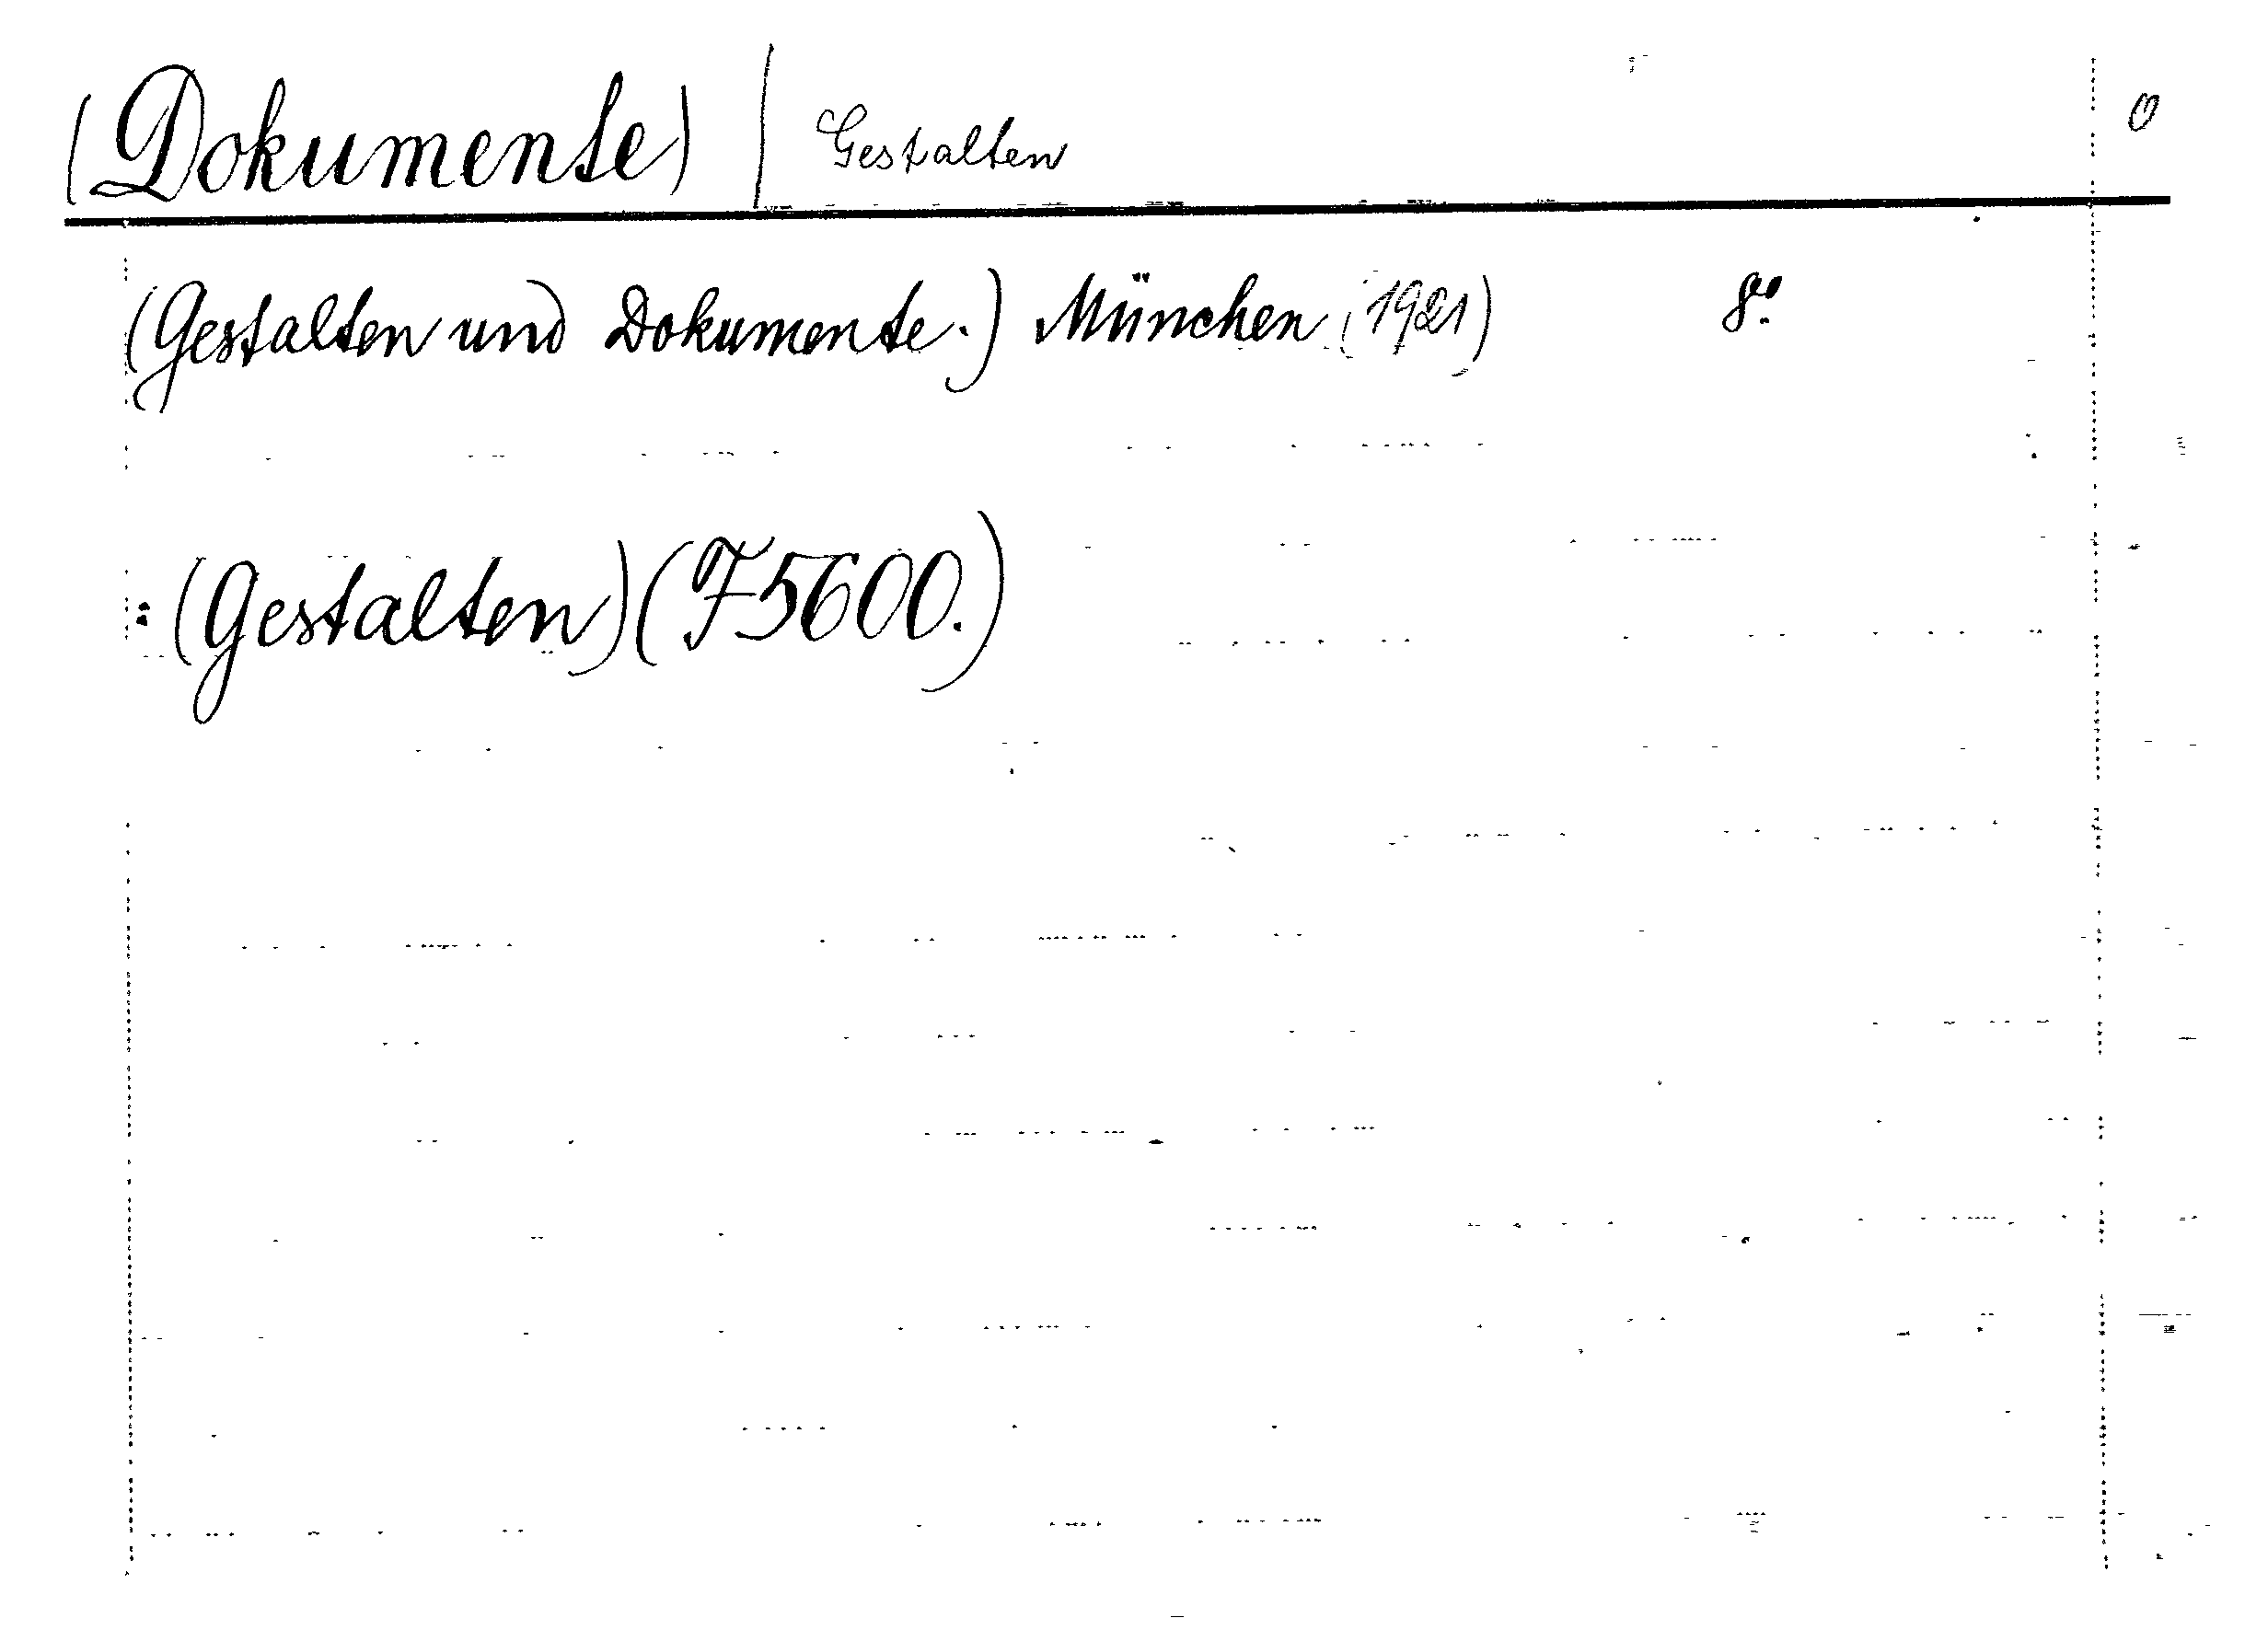 (Dokumente) | Gestalten 0
(Gestalten und Dokumente.) München (1921) 8º.
: (Gestalten) (F5600.)